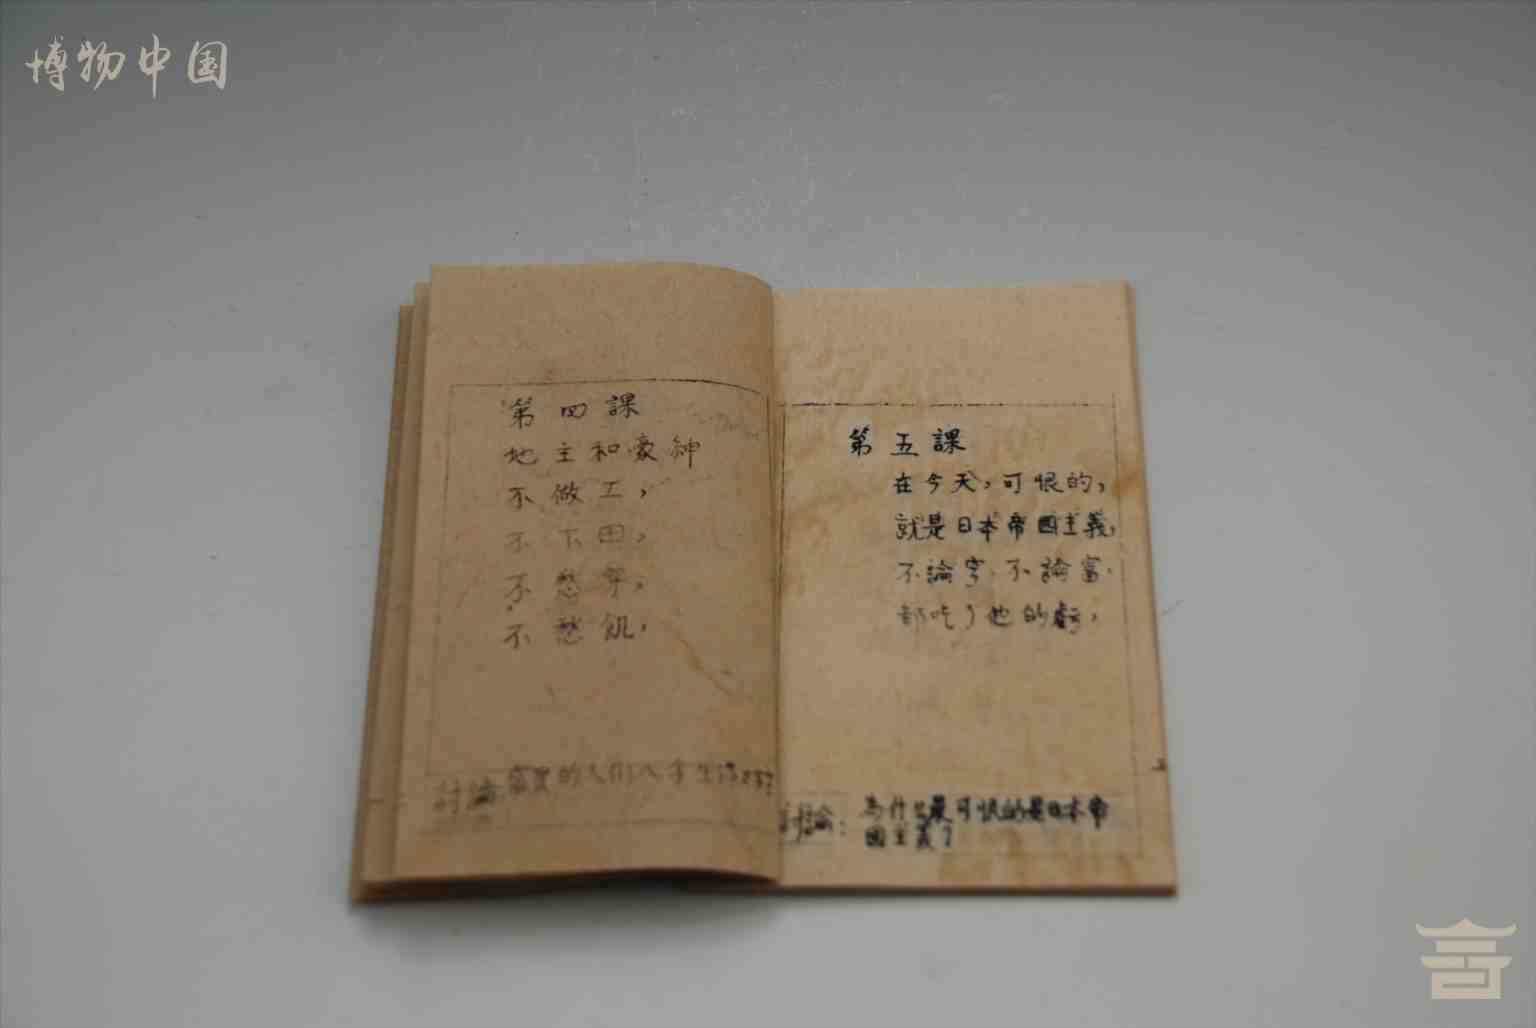 博物中国
第四課
地主和豪紳
不做工，
不下田，
不愁穿，
不愁飢，
討論：富里的人们人手生活
第五課
在今天，可恨的，
就是日本帝國主義，
不論窮，不論富，
都吃了他的虧，
討論：為什么最可恨的是日本帝
國主義？